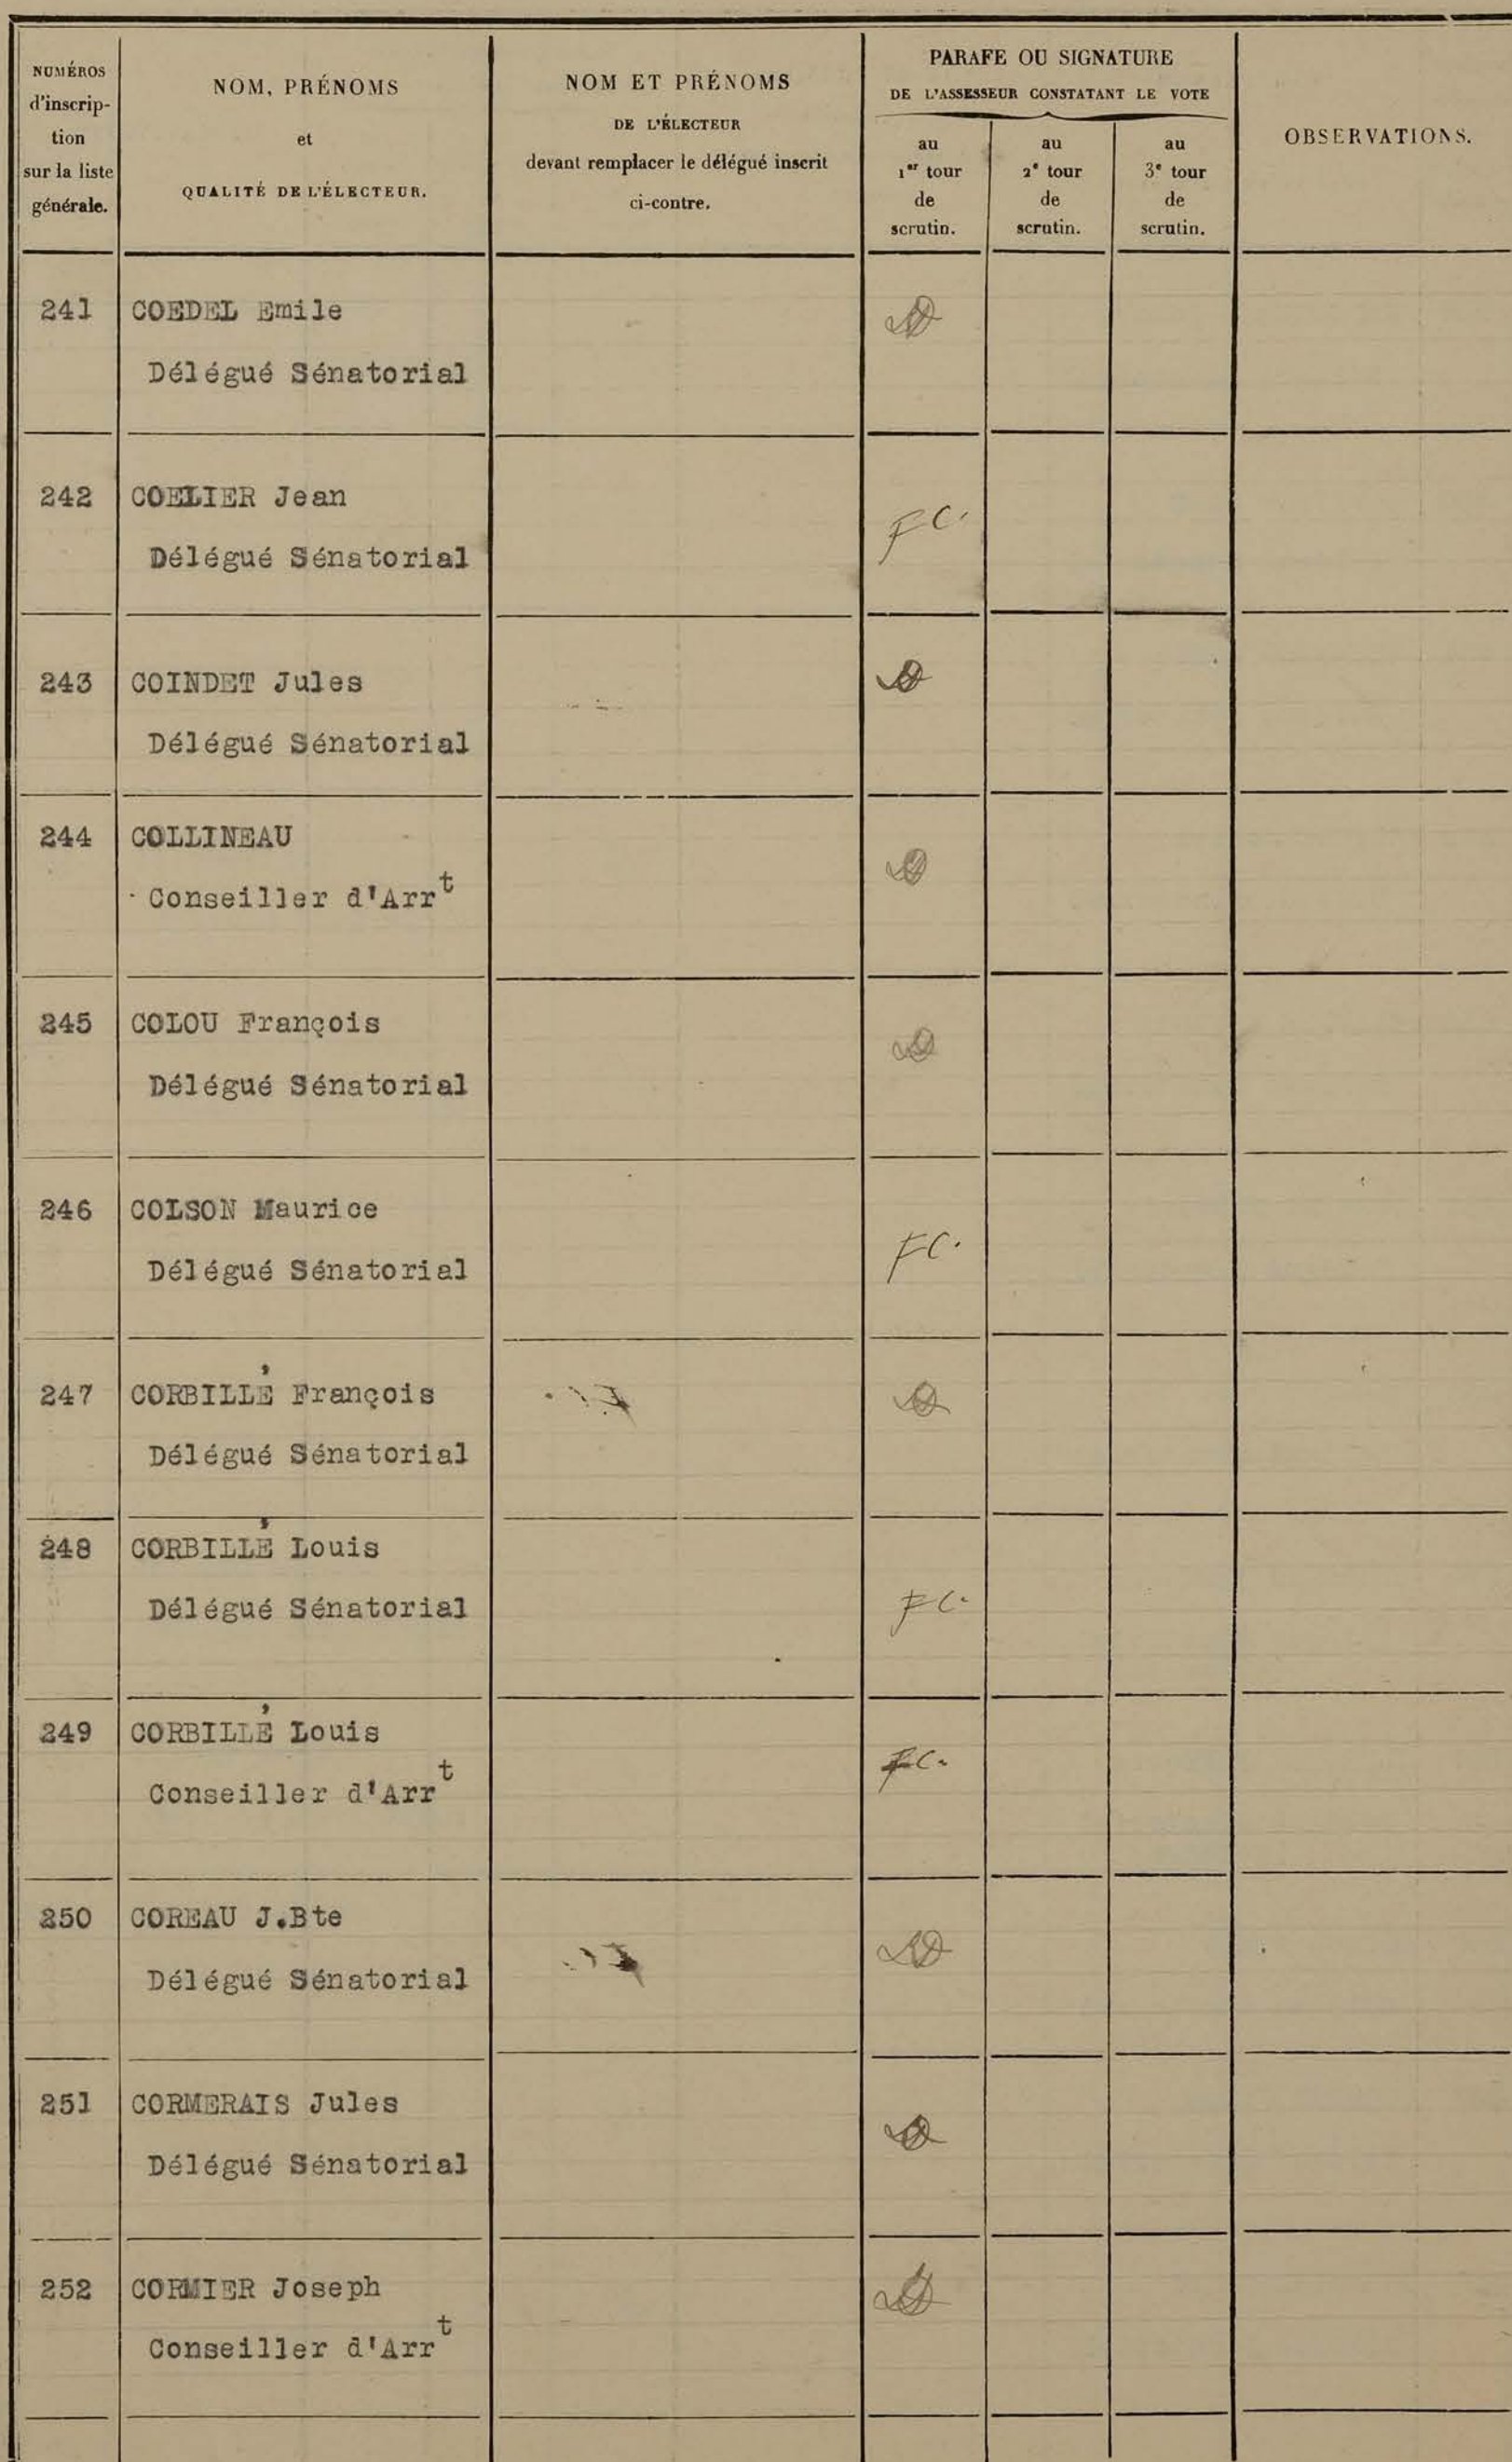 NUMÉROS
d'inscrip-
tion
sur la liste
générale.
NOM, PRÉNOMS
et
QUALITÉ DE L'ÉLECTEUR.
NOM ET PRÉNOMS
DE L'ÉLECTEUR
devant remplacer le délégué inscrit
ci-contre.
PARAFE OU SIGNATURE
DE L'ASSESSEUR CONSTATANT LE VOTE
au
1er tour
de
scrutin.
au
2e tour
de
scrutin.
au
3e tour
de
scrutin.
OBSERVATIONS.
241 COEDEL Emile
Délégué Sénatorial
242 COELIER Jean
Délégué Sénatorial
FC.
243 COINDET Jules
Délégué Sénatorial
244 COLLINEAU
Conseiller d'Arrt
245 COLOU François
Délégué Sénatorial
246 COLSON Maurice
Délégué Sénatorial
FC.
247 CORBILLÉ François
Délégué Sénatorial
248 CORBILLÉ Louis
Délégué Sénatorial
FC.
249 CORBILLÉ Louis
Conseiller d'Arrt
FC.
250 COREAU J.Bte
Délégué Sénatorial
251 CORMERAIS Jules
Délégué Sénatorial
252 CORMIER Joseph
Conseiller d'Arrt